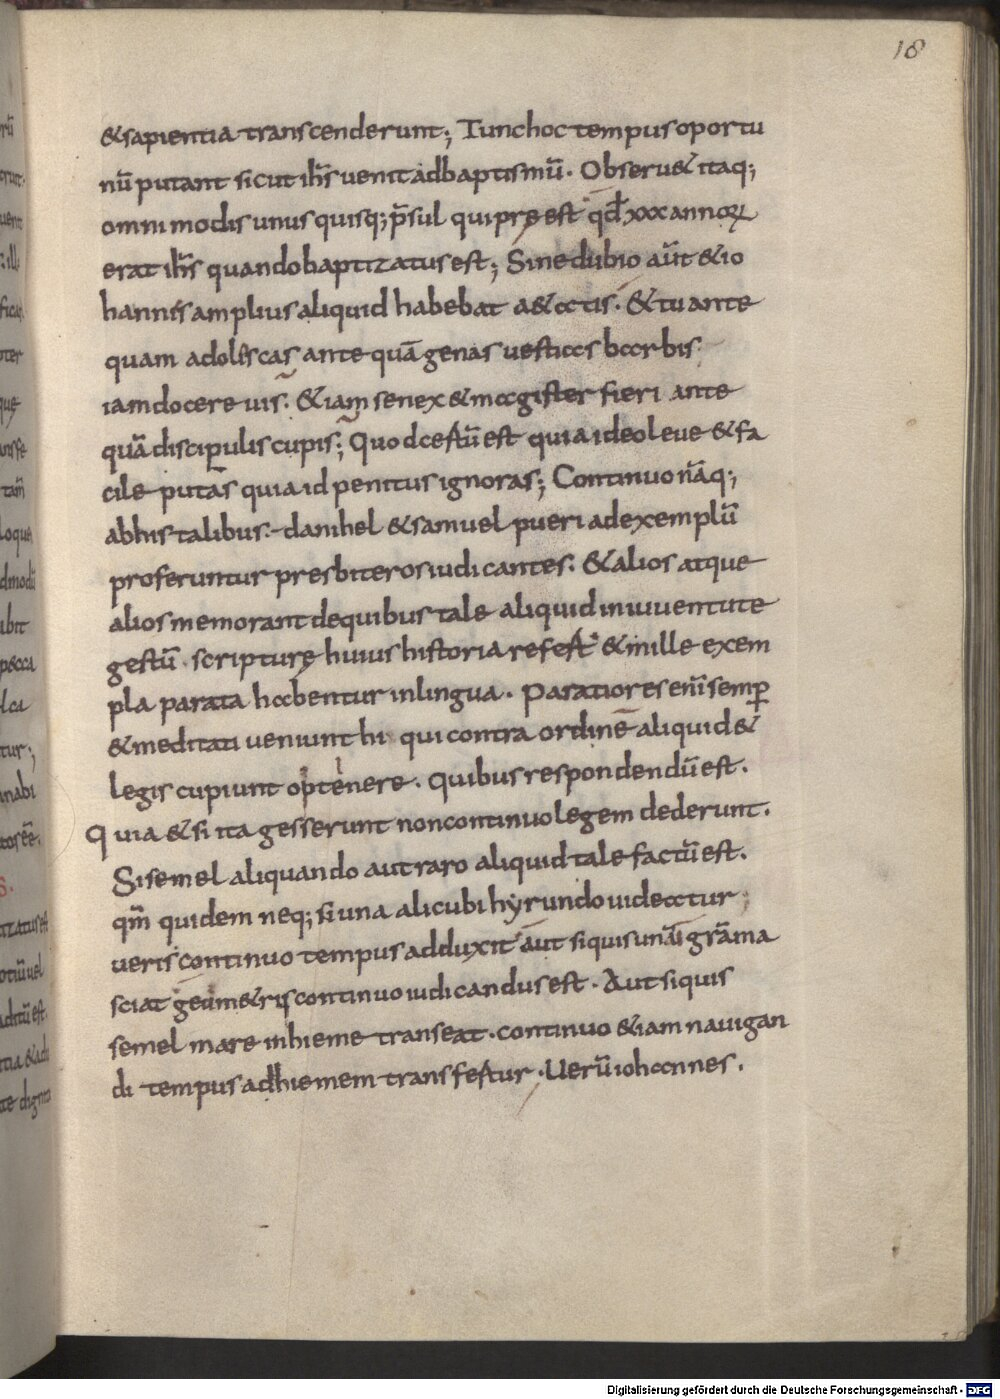 18
&sapientia transcenderunt; Tunc hoc tempus oportu
nū putant sicut ih̄s uenit ad baptismū. Obseru& itaq;
omnimodis unus quisq; p̄sul qui pręest qđ xxx annoꝝ
erat ih̄s quando baptizatus est; Sine dubio aūt & io
hannis amplius aliquid habebat a&atis. & tu ante
quam adolescas ante quā genas uestias barbis.
iam docere uis. &iam senex & magister fieri ante
quā discipulis cupis; Quod certū est quia ideo leue & fa
cile putas quia id penitus ignoras; Continuo nāq;
ab his talibus. danihel & samuel pueri ad exemplū
proferuntur presbiteros iudicantes. & alios atque
alios memorant de quibus tale aliquid in iuuentute
gestū scripturę huius historia refert & mille exem
pla parata habentur in lingua. Paratiores enī semꝑ
& meditati ueniunt hi qui contra ordinē aliquid &
legis cupiunt optinere. Quibus respondendū est.
Quia & si ita gesserunt non continuo legem dederunt.
Si semel aliquando aut raro aliquid tale factū est.
qm̄ quidem neq; si una alicubi hyrundo uideatur;
ueris continuo tempus adduxit aut si quis unā grāma
sciat geom&ris continuo iudicandus est. Aut si quis
semel mare in hieme transeat. continuo &iam nauigan
di tempus ad hiemem transfertur. Uerū iohannes.
Digitalisierung gefördert durch die Deutsche Forschungsgemeinschaft - DFG